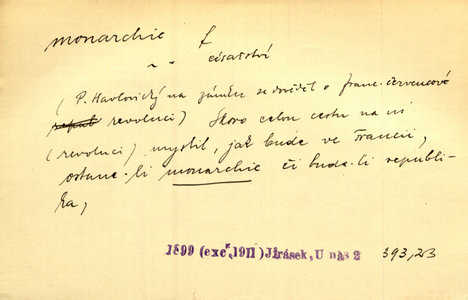 monarchie f
" " císařství
(P. Havlovický na zámku se dověděl o franc. červencové
repub revoluci) Skoro celou cestu na ni
(revoluci) myslil, jak bude ve Francii,
ostane-li monarchie či bude-li republi-
ka,
1899 (exc. 1911) Jirásek, U nás 2 393, 23